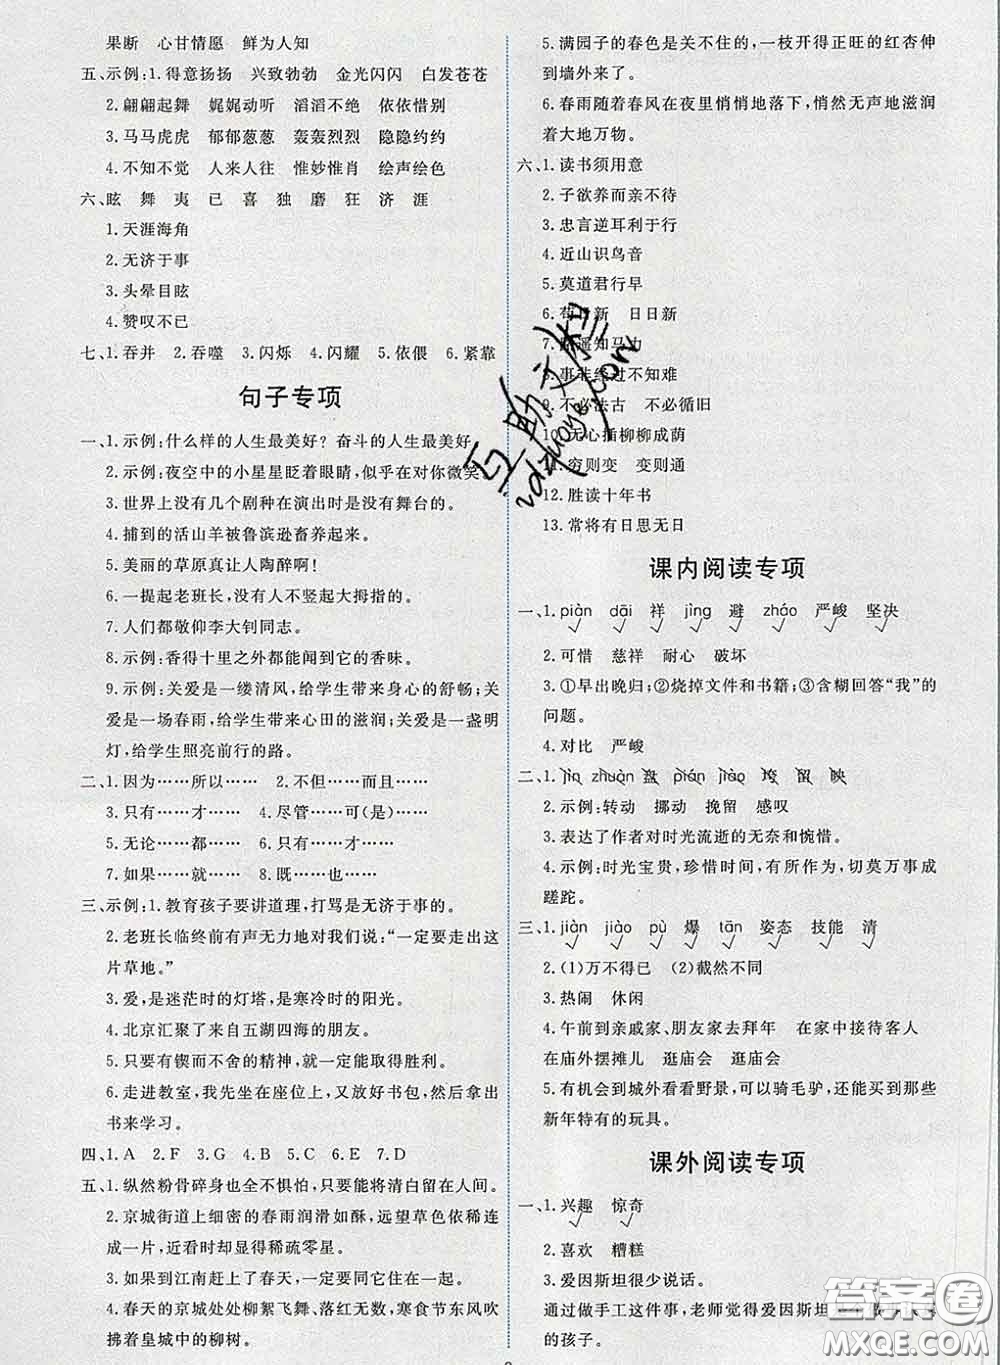 果断 心甘情愿 鲜为人知
五、示例:1.得意扬扬 兴致勃勃 金光闪闪 白发苍苍
2.翩翩起舞 娓娓动听 滔滔不绝 依依惜别
3.马马虎虎 郁郁葱葱 轰轰烈烈 隐隐约约
4.不知不觉 人来人往 惟妙惟肖 绘声绘色
六、眩 舞 夷 已 喜 独 磨 狂 济 涯
1.天涯海角
2.无济于事
3.头晕目眩
4.赞叹不已
七、1.吞并 2.吞噬 3.闪烁 4.闪耀 5.依偎 6.紧靠
句子专项
一、1.示例:什么样的人生最美好？奋斗的人生最美好
2.示例:夜空中的小星星眨着眼睛,似乎在对你微笑
3.世界上没有几个剧种在演出时是没有舞台的。
4.捕到的活山羊被鲁滨逊畜养起来。
5.美丽的草原真让人陶醉啊！
6.一提起老班长,没有人不竖起大拇指的。
7.人们都敬仰李大钊同志。
8.示例:香得十里之外都能闻到它的香味。
9.示例:关爱是一缕清风,给学生带来身心的舒畅;关
爱是一场春雨,给学生带来心田的滋润;关爱是一盏明
灯,给学生照亮前行的路。
二、1.因为……所以…… 2.不但……而且……
3.只有……才…… 4.尽管……可(是)……
5.无论……都…… 6.只有……才……
7.如果……就…… 8.既……也……
三、示例:1.教育孩子要讲道理,打骂是无济于事的。
2.老班长临终前有声无力地对我们说:“一定要走出这
片草地。”
3.爱,是迷茫时的灯塔,是寒冷时的阳光。
4.北京汇聚了来自五湖四海的朋友。
5.只要有锲而不舍的精神,就一定能取得胜利。
6.走进教室,轻轻地坐在座位上,又放好书包,然后拿出
书来学习。
四、1.A 2.F 3.G 4.B 5.C 6.E 7.D
五、1.纵然粉骨碎身也全不惧怕,只要能将清白留在人间。
2.京城街道上细密的春雨润滑如酥,远望草色依稀连
成一片,近看时却显得稀疏零星。
3.如果到江南赶上了春天,一定要和它住在一起。
4.春天的京城处处柳絮飞舞、落红无数,寒食节东风吹
拂着皇城中的柳树。
5.满园子的春色是关不住的,一枝开得正旺的红杏伸
到墙外来了。
6.春雨随着春风在夜里悄悄地落下,悄然无声地滋润
着大地万物。
六、1.读书须用意
2.子欲养而亲不待
3.忠言逆耳利于行
4.近山识鸟音
5.莫道君行早
6.苟日新 日日新
7.路遥知马力
8.事非经过不知难
9.不必法古 不必循旧
10.无心插柳柳成荫
11.穷则变 变则通
12.胜读十年书
13.常将有日思无日
课内阅读专项
一、1.piàn dāi 祥 jìng 避 zháo 严峻 坚决
2.可惜 慈祥 耐心 破坏
3.①早出晚归;②烧掉文件和书籍;③含糊回答“我”的
问题。
4.对比 严峻
二、1.jìn zhuàn 盘 pián jiào 垮 留 映
2.示例:转动 挪动 挽留 感叹
3.表达了作者对时光流逝的无奈和惋惜。
4.示例:时光宝贵,珍惜时间,有所作为,切莫万事成
蹉跎。
三、1.jiàn jiào pù 爆 tān 姿态 技能 清
2.(1)万不得已 (2)截然不同
3.热闹 休闲
4.午前到亲戚家、朋友家去拜年 在家中接待客人
在庙外摆摊儿 逛庙会 逛庙会
5.有机会到城外看看野景,可以骑毛驴,还能买到那些
新年特有的玩具。
课外阅读专项
一、1.兴趣 惊奇
2.喜欢 糟糕
3.爱因斯坦很少说话。
通过做手工这件事,老师觉得爱因斯坦
的孩子。
互助文楷
答案圈
MXQE.COM